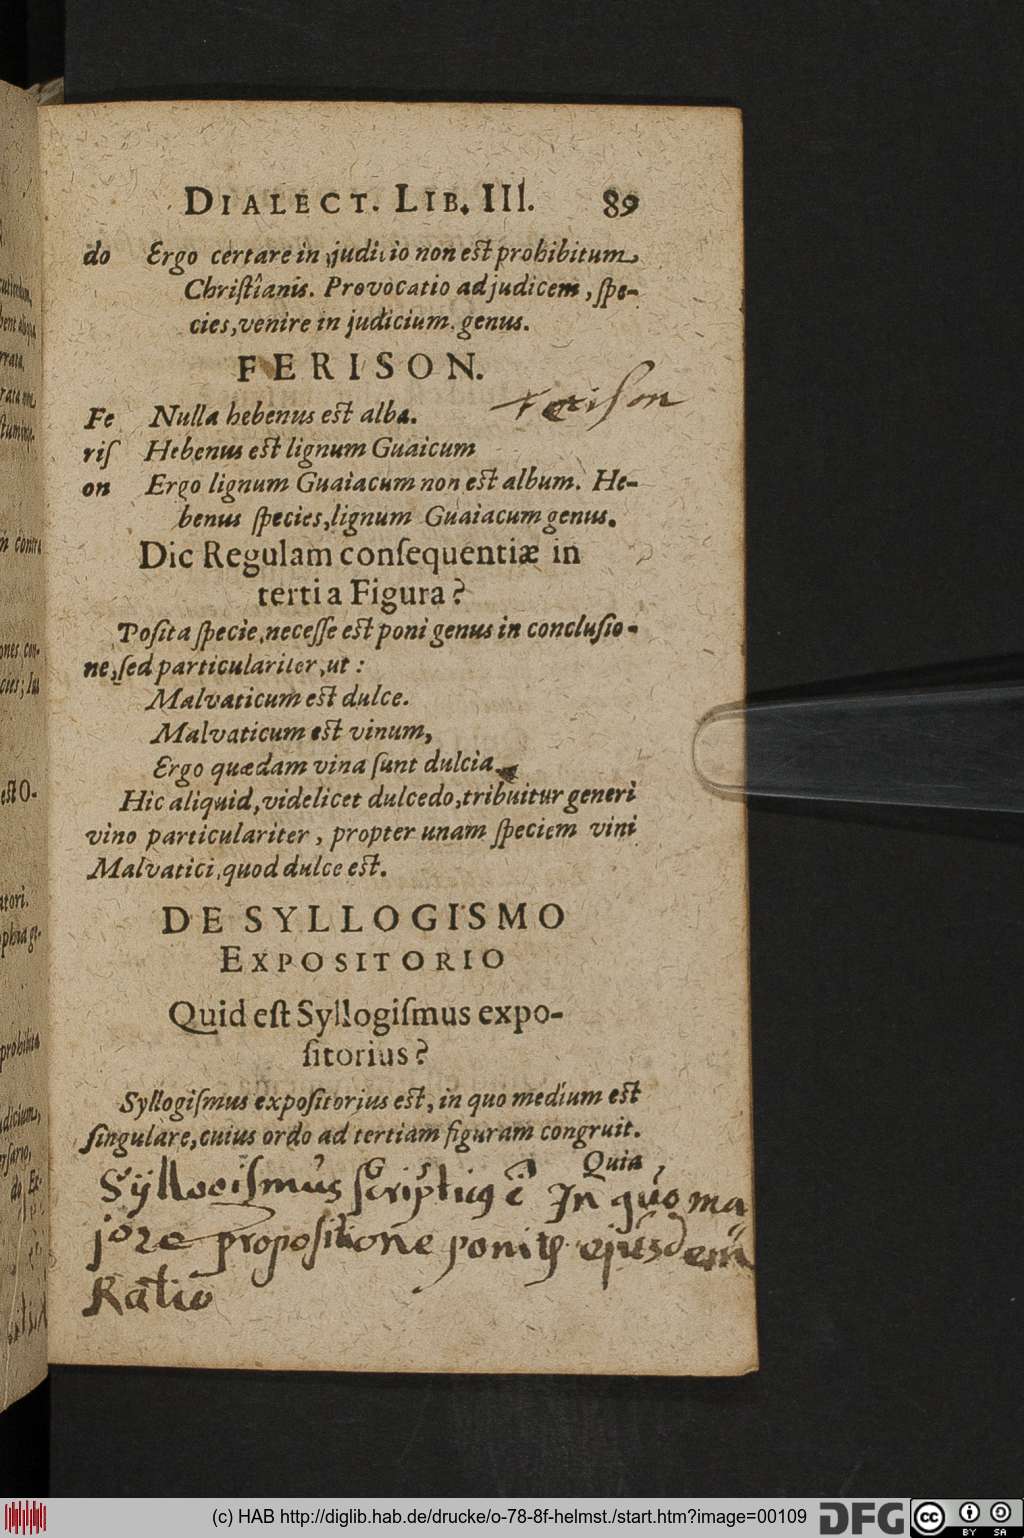 DIALECT. LIB. III. 89
do Ergo certare in judicio non est prohibitum
Christianis. Provocatio ad judicem, ſpe-
cies, venire in judicium. genus.
FERISON.
Feriſon
Fe Nulla hebenus est alba.
riſ Hebenus est lignum Guaicum
on Ergo lignum Guaiacum non est album. He-
benus ſpecies, lignum Guaiacum genus.
Dic Regulam conſequentiæ in
tertia Figura?
Poſita ſpecie, neceſſe est poni genus in concluſio-
ne, ſed particulariter, ut:
Malvaticum est dulce.
Malvaticum est vinum,
Ergo quædam vina ſunt dulcia.
Hic aliquid, videlicet dulcedo, tribuitur generi
vino particulariter, propter unam ſpeciem vini
Malvatici, quod dulce est.
DE SYLLOGISMO
EXPOSITORIO
Quid eſt Syllogiſmus expo-
ſitorius?
Syllogiſmus expoſitorius est, in quo medium est
ſingulare, cuius ordo ad tertiam figuram congruit.
Quia
Sÿllogiſmus In quo ma
jore propoſitione ejusdem
Ratio
(c) HAB http://diglib.hab.de/drucke/o-78-8f-helmst./start.htm?image=00109
DFG
cc
BY SA